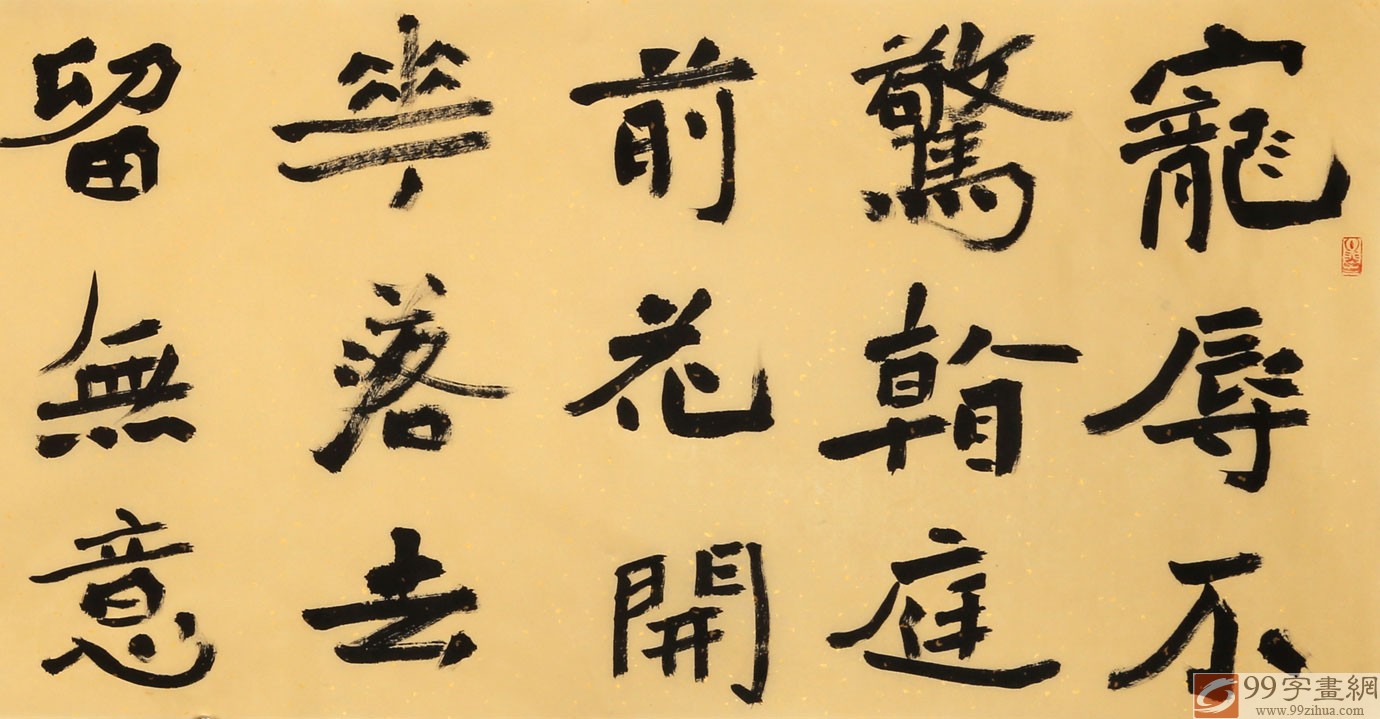 寵辱不
驚看庭
前花開
華落去
留無意
99字畫網
www.99zihua.com